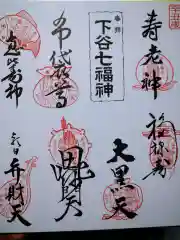 寿老神
福禄寿
奉拝
下谷七福神
大黒天
布袋尊
毘沙門天
恵比寿神
弁財天